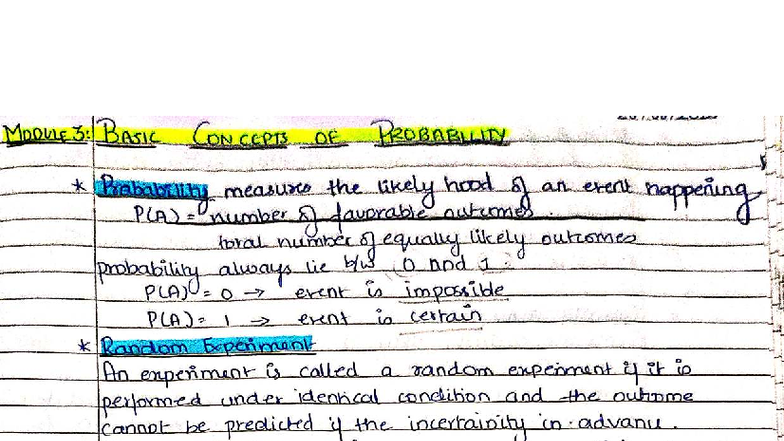 MODULE 3: BASIC CONCEPTS OF PROBABILITY
* Probability measures the likely hood of an event happening.
P(A) = number of favorable outcomes.
total number of equally likely outcomes
probability always lie b/w 0 and 1.
P(A) = 0 → event is impossible
P(A) = 1 → event is certain
* Random Experiment
An experiment is called a random experiment if it is
performed under identical condition and the outcome
cannot be predicted if the incertainity in advance.